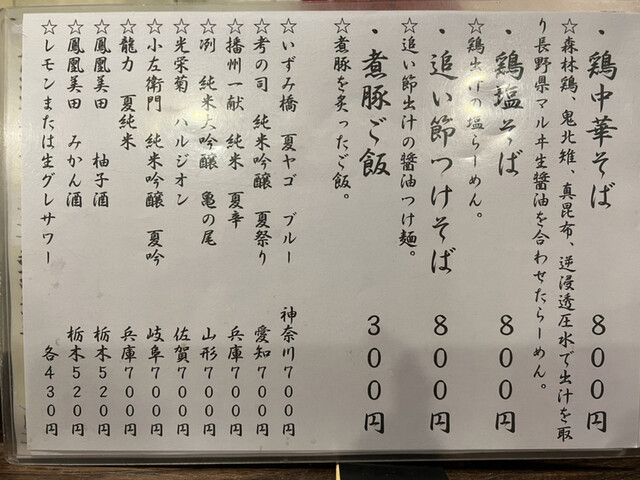 ・鶏中華そば 800円
☆森林鶏、鬼北雉、真昆布、逆浸透圧水で出汁を取
り長野県マルヰ生醬油を合わせたらーめん。
・鶏塩そば 800円
☆鶏出汁の塩らーめん。
・追い節つけそば 800円
☆追い節出汁の醬油つけ麺。
・煮豚ご飯 300円
☆煮豚を炙ったご飯。
☆いずみ橋 夏ヤゴ ブルー 神奈川700円
☆考の司 純米吟醸 夏祭り 愛知700円
☆播州一献 純米 夏辛 兵庫700円
☆冽 純米大吟醸 亀の尾 山形700円
☆光栄菊 ハルジオン 佐賀700円
☆小左衛門 純米吟醸 夏吟 岐阜700円
☆龍力 夏純米 兵庫700円
☆鳳凰美田 柚子酒 栃木520円
☆鳳凰美田 みかん酒 栃木520円
☆レモンまたは生グレサワー 各430円